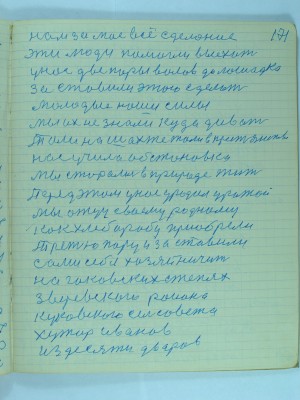 191
нам за мае всё сделоние
эти люди помогли выехат
у нас две пары волов да лошадка
за ставили этого сделат
молодые наши силы
мы их не знали куда деват
Толи на шахте толи в
нас учила обстоновка
мы старолис в природе жит
перед этом у нас уродил урожай
мы отцу своему родному
как хлебаробу приобрели
Третю пару и за ставили
сами себя хозяйничат
на гоковских степях
зверевского района
куковского сельсовета
хутор иванов
из десяти дваров